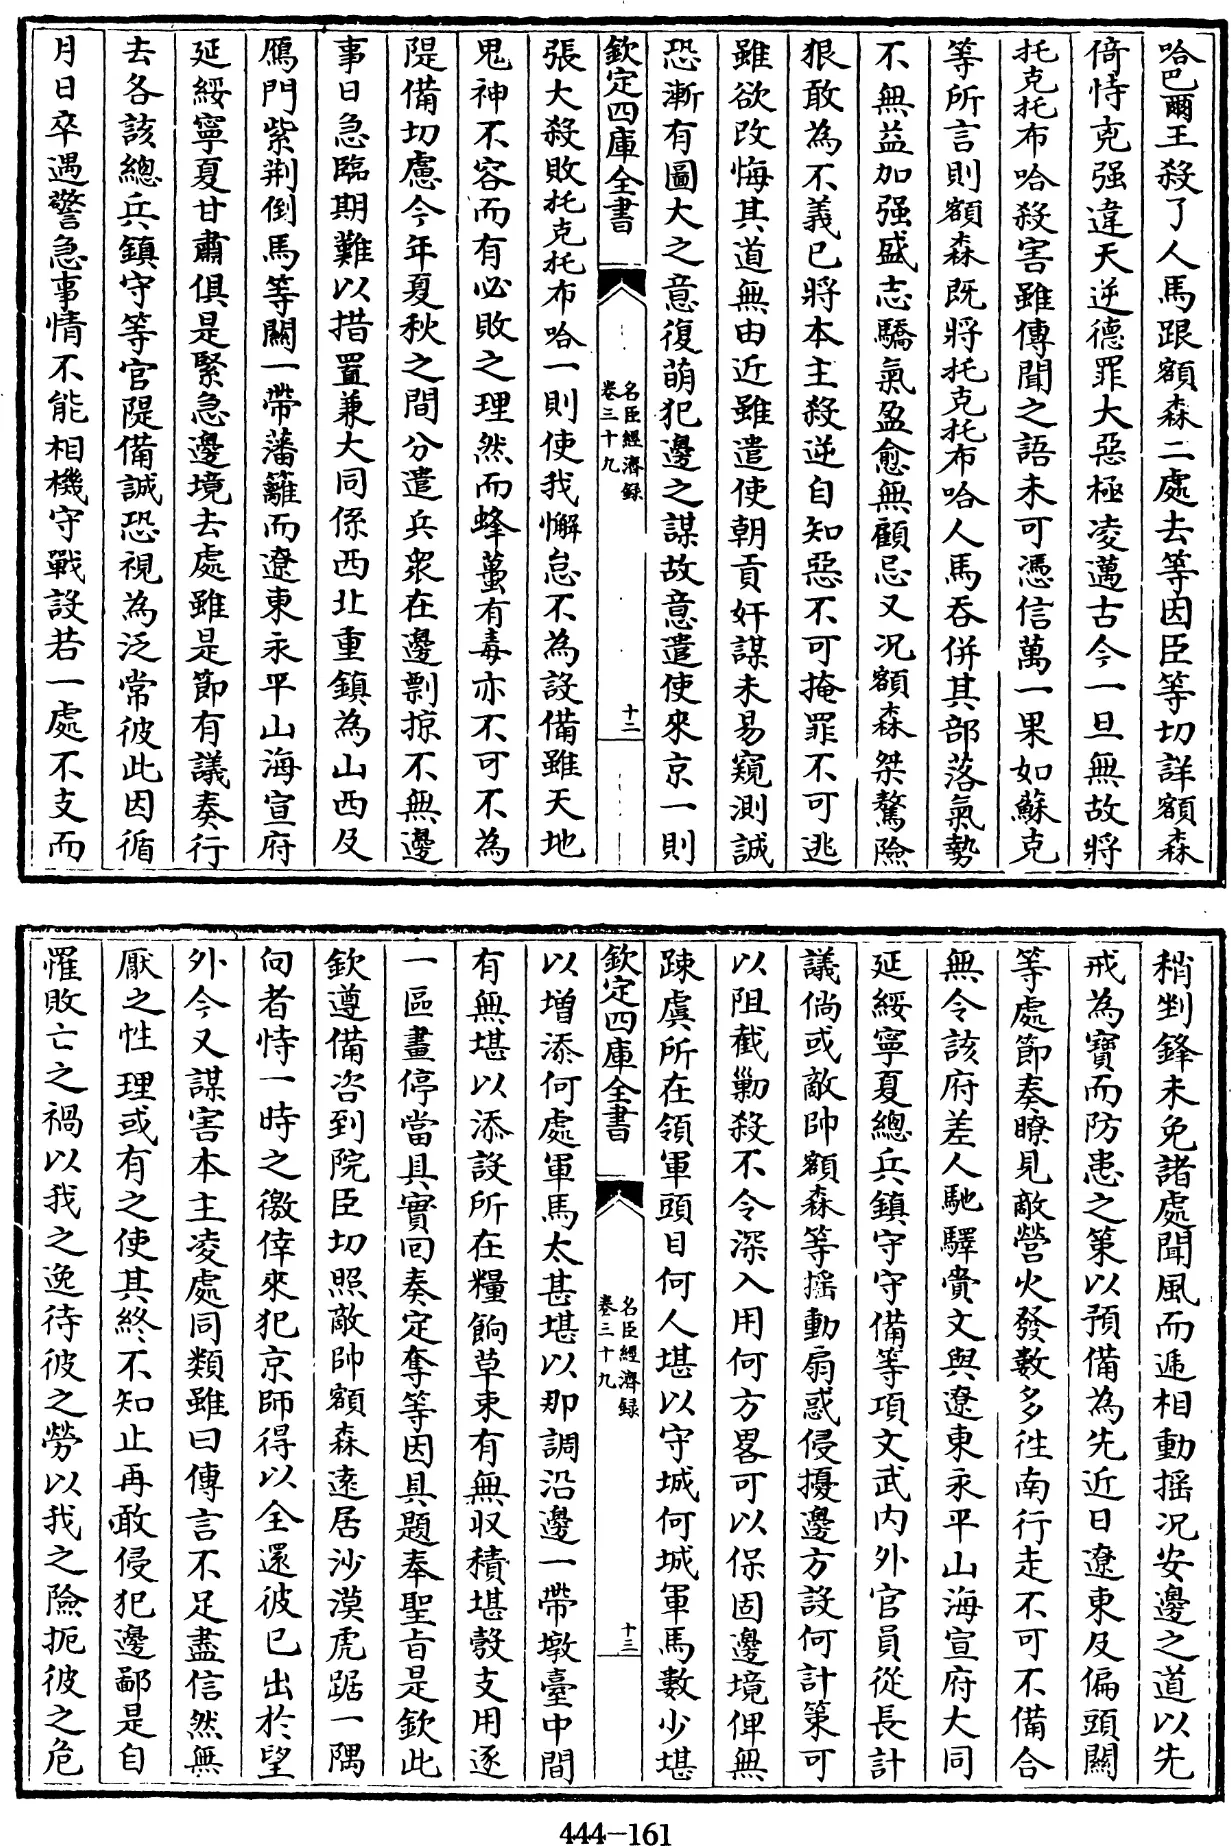 哈巴爾王殺了人馬跟額森二處去等因臣等切詳額森
倚恃克强違天逆德罪大惡極凌蔑古今一旦無故將
托克托布哈殺害雖傳聞之語未可憑信萬一果如蘇克
等所言則額森既將托克托布哈人馬吞併其部落氣勢
不無益加强盛志驕氣盈愈無顧忌又况額森桀驁險
狠敢為不義已將本主殺逆自知惡不可掩罪不可逃
雖欲改悔其道無由近雖遣使朝貢奸謀未易窺測誠
恐漸有圖大之意復萌犯邊之謀故意遣使來京一則
欽定四庫全書
名臣經濟録
卷三十九
十二
張大殺敗托克托布哈一則使我懈怠不為設備雖天地
鬼神不容而有必敗之理然而蜂蠆有毒亦不可不為
隄備切慮今年夏秋之間分遣兵衆在邊剽掠不無邊
事日急臨期難以措置兼大同係西北重鎮為山西及
鴈門紫荆倒馬等關一帶藩籬而遼東永平山海宣府
延綏寧夏甘肅俱是緊急邊境去處雖是節有議奏行
去各該總兵鎮守等官隄備誠恐視為泛常彼此因循
月日卒遇警急事情不能相機守戰設若一處不支而
稍剉鋒未免諸處聞風而遞相動摇况安邊之道以先
戒為寶而防患之策以預備為先近日遼東及偏頭關
等處節奏瞭見敵營火發數多徃南行走不可不備合
無令該府差人馳驛賫文與遼東永平山海宣府大同
延綏寧夏總兵鎮守守備等項文武内外官員從長計
議倘或敵帥額森等摇動扇惑侵擾邊方設何計策可
以阻截勦殺不令深入用何方畧可以保固邊境俾無
踈虞所在領軍頭目何人堪以守城何城軍馬數少堪
欽定四庫全書
名臣經濟録
卷三十九
十三
以增添何處軍馬太甚堪以那調沿邊一帶墩臺中間
有無堪以添設所在糧餉草束有無収積堪彀支用逐
一區畫停當具實回奏定奪等因具題奉聖旨是欽此
欽遵備咨到院臣切照敵帥額森遠居沙漠虎踞一隅
向者恃一時之徼倖來犯京師得以全還彼已出於望
外今又謀害本主凌處同類雖曰傳言不足盡信然無
厭之性理或有之使其終不知止再敢侵犯邊鄙是自
罹敗亡之禍以我之逸待彼之勞以我之險扼彼之危
444-161